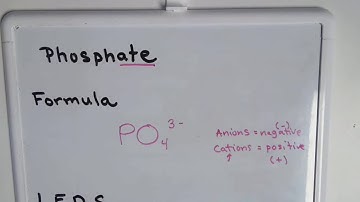 Phosphate
Formula
PO₄³⁻
(-)
Anions = negative
Cations = positive
↑ (+)
L.E.D.S